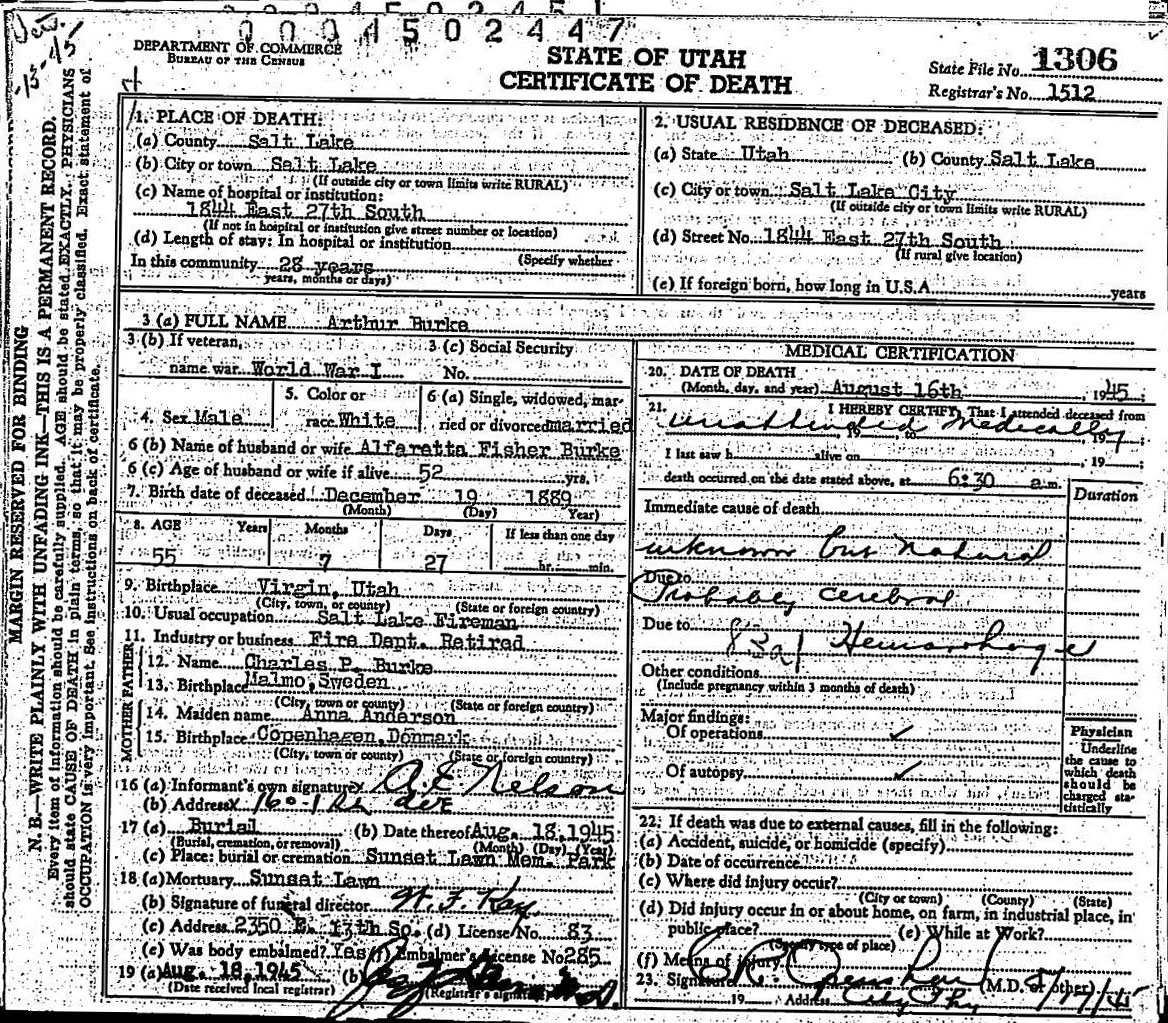 0 0 0 4 5 0 2 4 4 7
DEPARTMENT OF COMMERCE
BUREAU OF THE CENSUS
STATE OF UTAH
CERTIFICATE OF DEATH
State File No. 1306
Registrar's No. 1512
MARGIN RESERVED FOR BINDING
N. B.—WRITE PLAINLY WITH UNFADING INK—THIS IS A PERMANENT RECORD.
Every item of information should be carefully supplied. AGE should be stated EXACTLY. PHYSICIANS
should state CAUSE OF DEATH in plain terms, so that it may be properly classified. Exact statement of
OCCUPATION is very important. See instructions on back of certificate.
1. PLACE OF DEATH:
(a) County Salt Lake
(b) City or town Salt Lake
(If outside city or town limits write RURAL)
(c) Name of hospital or institution:
1844 East 27th South
(If not in hospital or institution give street number or location)
(d) Length of stay: In hospital or institution
(Specify whether
In this community 28 years
years, months or days)
2. USUAL RESIDENCE OF DECEASED:
(a) State Utah (b) County Salt Lake
(c) City or town Salt Lake City
(If outside city or town limits write RURAL)
(d) Street No. 1844 East 27th South
(If rural give location)
(e) If foreign born, how long in U.S.A. years
3 (a) FULL NAME Arthur Burke
3 (b) If veteran, 3 (c) Social Security
name war World War I No.
4. Sex Male 5. Color or race White 6 (a) Single, widowed, married or divorced married
6 (b) Name of husband or wife Alfaretta Fisher Burke
6 (c) Age of husband or wife if alive 52 yrs.
7. Birth date of deceased December 19 1889
(Month) (Day) Year)
8. AGE Years Months Days If less than one day
55 7 27 hr. min.
9. Birthplace Virgin, Utah
(City, town, or county) (State or foreign country)
10. Usual occupation Salt Lake Fireman
11. Industry or business Fire Dept. Retired
FATHER
12. Name Charles P. Burke
13. Birthplace Malmo, Sweden
(City, town or county) (State or foreign country)
MOTHER
14. Maiden name Anna Anderson
15. Birthplace Copenhagen, Donmark
(City, town or county) (State or foreign country)
16 (a) Informant's own signature Nelson
(b) Address
17 (a) Burial (b) Date thereof Aug. 18, 1945
(Burial, cremation, or removal) (Month) (Day) (Year)
(c) Place: burial or cremation Sunset Lawn Mem. Park
18 (a) Mortuary Sunset Lawn
(b) Signature of funeral director W. F. Kay
(c) Address 2350 E. 13th So. (d) License No. 83
(e) Was body embalmed? Yes (f) Embalmer's License No 285
19 (a) Aug. 18, 1945 (b)
(Date received local registrar) (Registrar's signature)
MEDICAL CERTIFICATION
20. DATE OF DEATH
(Month, day, and year) August 16th, 1945
21. I HEREBY CERTIFY, That I attended deceased from
unattended Medically
19 to 19
I last saw h alive on , 19 ;
death occurred on the date stated above, at 6:30 a.m.
Duration
Immediate cause of death
unknown but natural
Due to
Probably cerebral
Due to
83a1 Hemorrhage
Other conditions
(Include pregnancy within 3 months of death)
Major findings:
Of operations ✓
Of autopsy ✓
Physician
Underline
the cause to
which death
should be
charged sta-
tistically
22. If death was due to external causes, fill in the following:
(a) Accident, suicide, or homicide (specify)
(b) Date of occurrence
(c) Where did injury occur?
(City or town) (County) (State)
(d) Did injury occur in or about home, on farm, in industrial place, in
public place? (e) While at Work?
(Specify type of place)
(f) Means of injury
23. Signature (M.D. or other) 8/17/45
19 Address City Phy